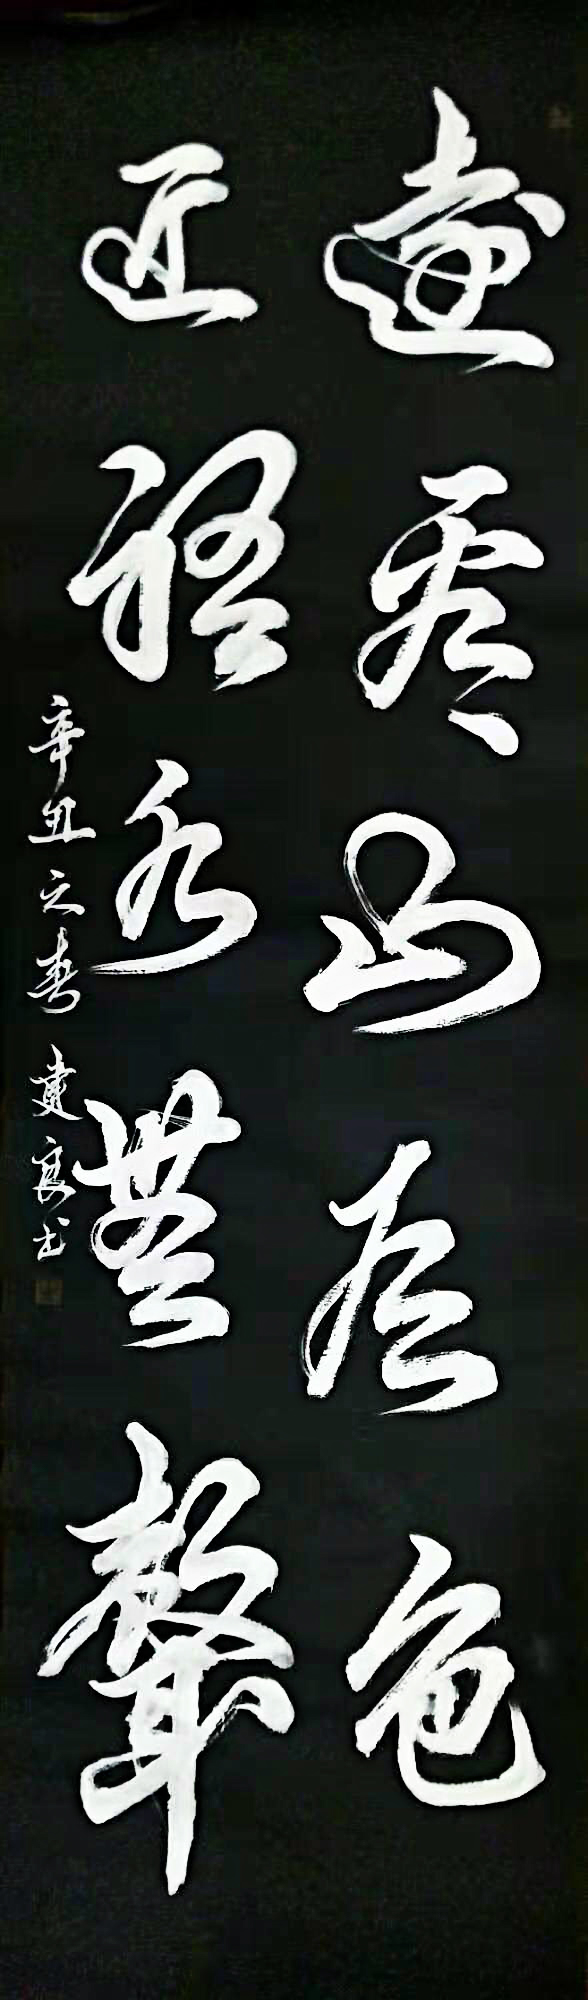 遠看山有色
近聽水無聲
辛丑之春 建良书